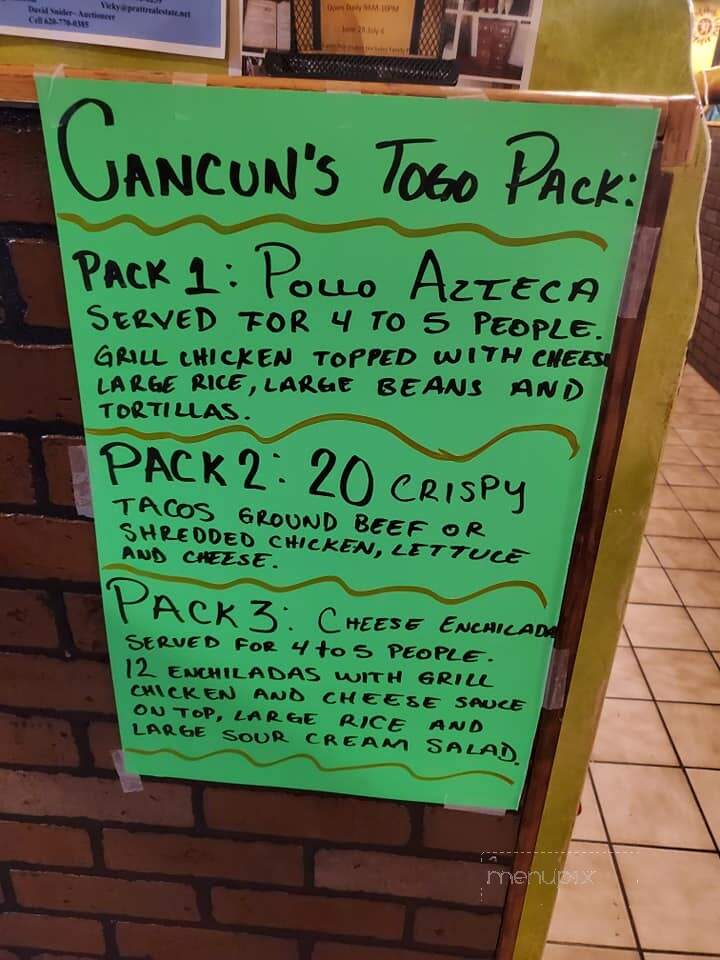 Vicky@prattrealestate.net
David Snider- Auctioneer
Cell 620-770-0385
Open Daily 9AM-10PM
June 28-July 6
CANCUN'S TOGO PACK:
PACK 1: POLLO AZTECA
SERVED FOR 4 TO 5 PEOPLE.
GRILL CHICKEN TOPPED WITH CHEESE
LARGE RICE, LARGE BEANS AND
TORTILLAS.
PACK 2: 20 CRISPY
TACOS GROUND BEEF OR
SHREDDED CHICKEN, LETTUCE
AND CHEESE.
PACK 3: CHEESE ENCHILADA
SERVED FOR 4 to 5 PEOPLE.
12 ENCHILADAS WITH GRILL
CHICKEN AND CHEESE SAUCE
ON TOP, LARGE RICE AND
LARGE SOUR CREAM SALAD.
menupix